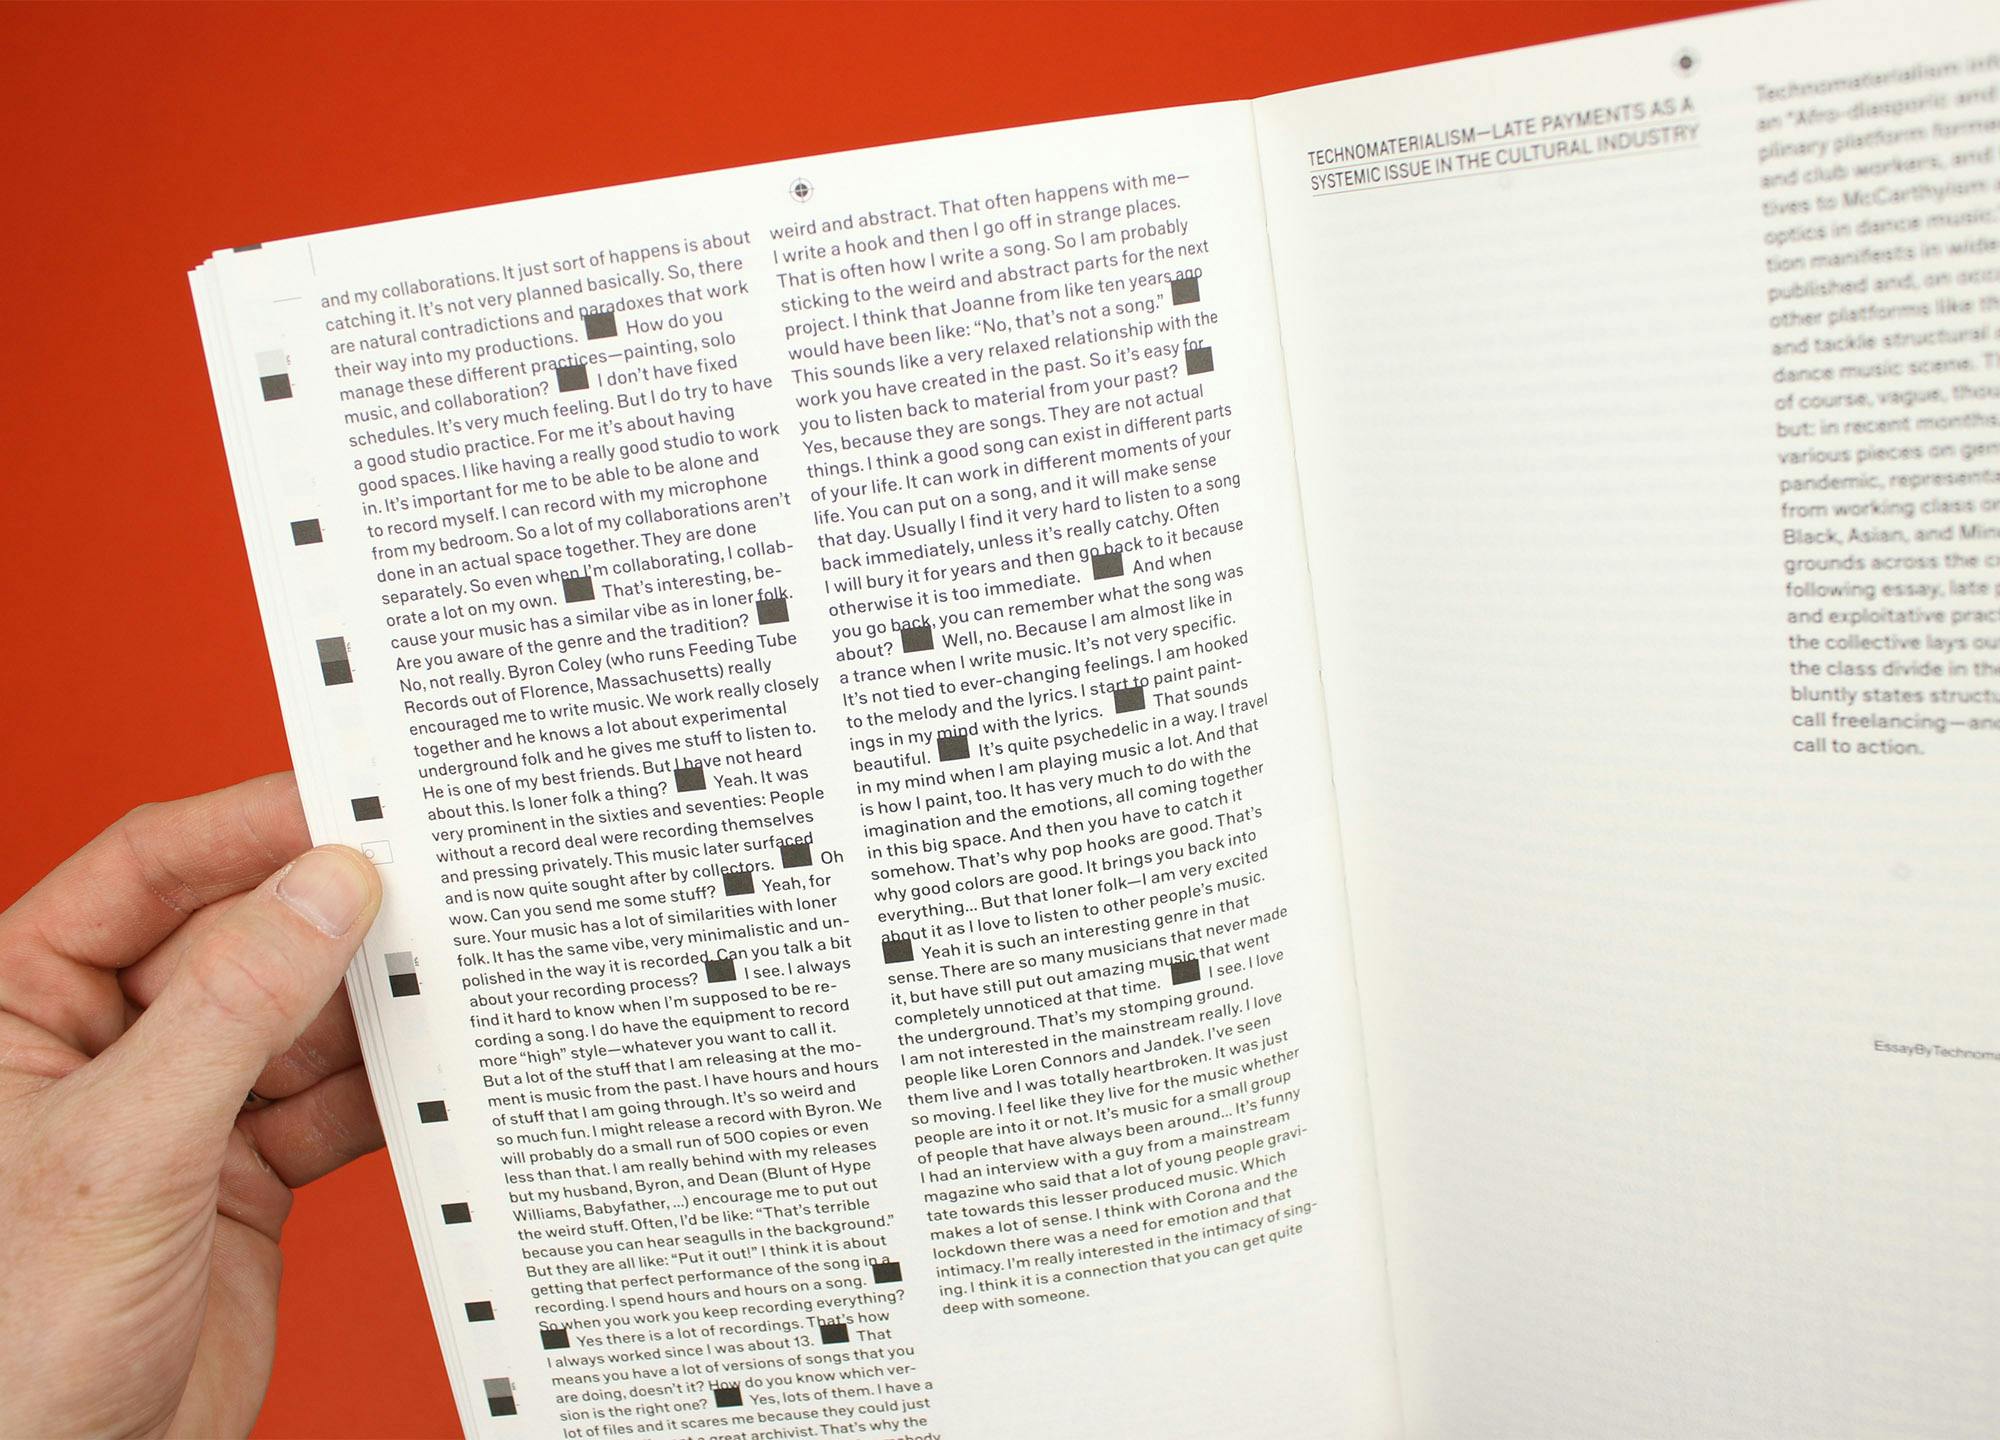 and my collaborations. It just sort of happens is about
catching it. It's not very planned basically. So, there
are natural contradictions and paradoxes that work
their way into my productions. How do you
manage these different practices—painting, solo
music, and collaboration? I don't have fixed
schedules. It's very much feeling. But I do try to have
a good studio practice. For me it's about having
good spaces. I like having a really good studio to work
in. It's important for me to be able to be alone and
to record myself. I can record with my microphone
from my bedroom. So a lot of my collaborations aren't
done in an actual space together. They are done
separately. So even when I'm collaborating, I collab-
orate a lot on my own. That's interesting, be-
cause your music has a similar vibe as in loner folk.
Are you aware of the genre and the tradition?
No, not really. Byron Coley (who runs Feeding Tube
Records out of Florence, Massachusetts) really
encouraged me to write music. We work really closely
together and he knows a lot about experimental
underground folk and he gives me stuff to listen to.
He is one of my best friends. But I have not heard
about this. Is loner folk a thing? Yeah. It was
very prominent in the sixties and seventies: People
without a record deal were recording themselves
and pressing privately. This music later surfaced
and is now quite sought after by collectors. Oh
wow. Can you send me some stuff? Yeah, for
sure. Your music has a lot of similarities with loner
folk. It has the same vibe, very minimalistic and un-
polished in the way it is recorded. Can you talk a bit
about your recording process? I see. I always
find it hard to know when I'm supposed to be re-
cording a song. I do have the equipment to record
more “high” style—whatever you want to call it.
But a lot of the stuff that I am releasing at the mo-
ment is music from the past. I have hours and hours
of stuff that I am going through. It's so weird and
so much fun. I might release a record with Byron. We
will probably do a small run of 500 copies or even
less than that. I am really behind with my releases
but my husband, Byron, and Dean (Blunt of Hype
Williams, Babyfather, ...) encourage me to put out
the weird stuff. Often, I'd be like: “That's terrible
because you can hear seagulls in the background.”
But they are all like: “Put it out!” I think it is about
getting that perfect performance of the song in a
recording. I spend hours and hours on a song.
So when you work you keep recording everything?
Yes there is a lot of recordings. That's how
I always worked since I was about 13. That
means you have a lot of versions of songs that you
are doing, doesn't it? How do you know which ver-
sion is the right one? Yes, lots of them. I have a
lot of files and it scares me because they could just
great archivist. That's why the
weird and abstract. That often happens with me—
I write a hook and then I go off in strange places.
That is often how I write a song. So I am probably
sticking to the weird and abstract parts for the next
project. I think that Joanne from like ten years ago
would have been like: “No, that's not a song.”
This sounds like a very relaxed relationship with the
work you have created in the past. So it's easy for
you to listen back to material from your past?
Yes, because they are songs. They are not actual
things. I think a good song can exist in different parts
of your life. It can work in different moments of your
life. You can put on a song, and it will make sense
that day. Usually I find it very hard to listen to a song
back immediately, unless it's really catchy. Often
I will bury it for years and then go back to it because
otherwise it is too immediate. And when
you go back, you can remember what the song was
about? Well, no. Because I am almost like in
a trance when I write music. It's not very specific.
It's not tied to ever-changing feelings. I am hooked
to the melody and the lyrics. I start to paint paint-
ings in my mind with the lyrics. That sounds
beautiful. It's quite psychedelic in a way. I travel
in my mind when I am playing music a lot. And that
is how I paint, too. It has very much to do with the
imagination and the emotions, all coming together
in this big space. And then you have to catch it
somehow. That's why pop hooks are good. That's
why good colors are good. It brings you back into
everything... But that loner folk—I am very excited
about it as I love to listen to other people's music.
Yeah it is such an interesting genre in that
sense. There are so many musicians that never made
it, but have still put out amazing music that went
completely unnoticed at that time. I see. I love
the underground. That's my stomping ground.
I am not interested in the mainstream really. I love
people like Loren Connors and Jandek. I've seen
them live and I was totally heartbroken. It was just
so moving. I feel like they live for the music whether
people are into it or not. It's music for a small group
of people that have always been around... It's funny
I had an interview with a guy from a mainstream
magazine who said that a lot of young people gravi-
tate towards this lesser produced music. Which
makes a lot of sense. I think with Corona and the
lockdown there was a need for emotion and that
intimacy. I'm really interested in the intimacy of sing-
ing. I think it is a connection that you can get quite
deep with someone.
TECHNOMATERIALISM—LATE PAYMENTS AS A
SYSTEMIC ISSUE IN THE CULTURAL INDUSTRY
Technomaterialism
an “Afro-diasporic and
plinary platform
and club workers, and
tives to McCarthyism
optics in dance music.
tion manifests in
published and, on
other platforms like
and tackle structural
dance music scene.
of course, vague,
but: in recent months,
various pieces on
pandemic,
from working class
Black, Asian, and
grounds across the
following essay, late
and exploitative
the collective lays
the class divide in
bluntly states
call freelancing—
call to action.